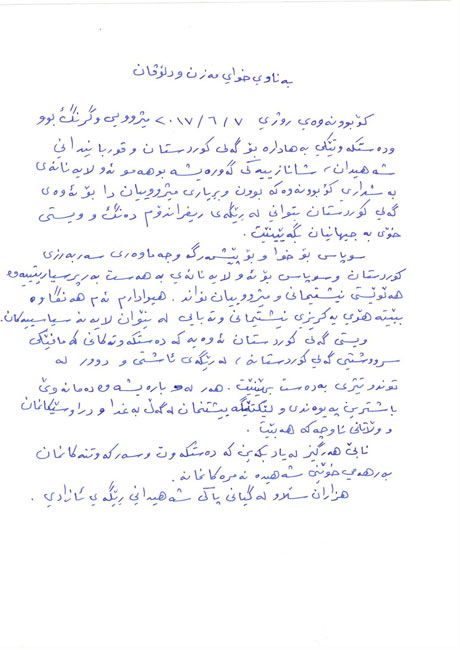 بەناوی خوای مەزن و دلۆڤان
کۆبوونەوەی رۆژی ٢٠١٧/٦/٧ مێژوویی و گرنگ بوو
و دەستکەوتێکی بەهادارە بۆ گەلی کوردستان و قوربانیدانی
شەهیدان، شانازییەکی گەورەیشە بۆ هەموو ئەو لایەنانەی
بەشداری کۆبوونەوەکە بوون و بڕیاری مێژووییان دا بۆ ئەوەی
گەلی کوردستان بتوانێ لە رێگەی ریفراندۆم دەنگ و ویستی
خۆی بە جیهانیان بگەیێنێت.
سوپاس بۆ خوا و بۆ پێشمەرگە و جەماوەری سەربەرزی
کوردستان و سوپاس بۆ ئەو لایەنانەی بە هەست بەرپرسیارییەوە
هەڵوێستی نیشتیمانی و مێژووییان نواند. هیوادارم ئەم هەنگاوە
ببێتە هۆی یەکڕیزی نیشتیمانی و تەبایی لە نێوان لایەنە سیاسییەکان.
ویستی گەلی کوردستان ئەوەیە کە دەستکەوتەکانی کە مافێکی
سروودشتی گەلی کوردستانە، لە رێگەی ئاشتی و دوور لە
توندوتیژی بەدەست بهێنێت. هەر لەو بارەیشەوە دەمانەوێ
باشترین پەیوەندی و لێکتێگەیشتنمان لەگەڵ بەغدا و دراوسێکانمان
و وڵاتانی ناوچەکە هەبێت.
نابێ هەرگیز لەیاد بکەین کە دەستکەوت و سەرکەوتنەکانمان
بەرهەمی خوێنی شەهیدە نەمرەکانمانە.
هزاران سڵاو لە گیانی پاکی شەهیدانی رێگەی ئازادی.